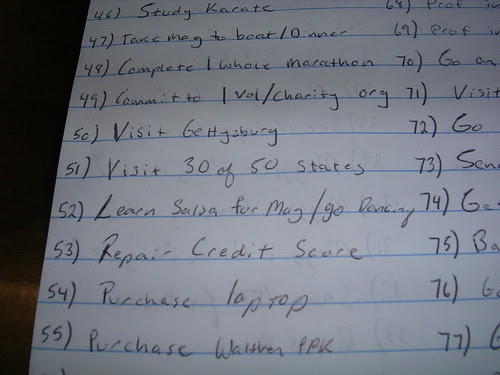 46) Study Karate 68) Prof in
47) Take Mag to boat/Dinner 69) Prof in
48) Complete 1 whole marathon 70) Go on
49) Commit to 1 vol/charity org 71) Visit
50) Visit Gettysburg 72) Go
51) Visit 30 of 50 states 73) Sen
52) Learn Salsa for Mag/go Dancing 74) Ge
53) Repair Credit Score 75) Ba
54) Purchase laptop 76) G
55) Purchase Walther PPK 77)